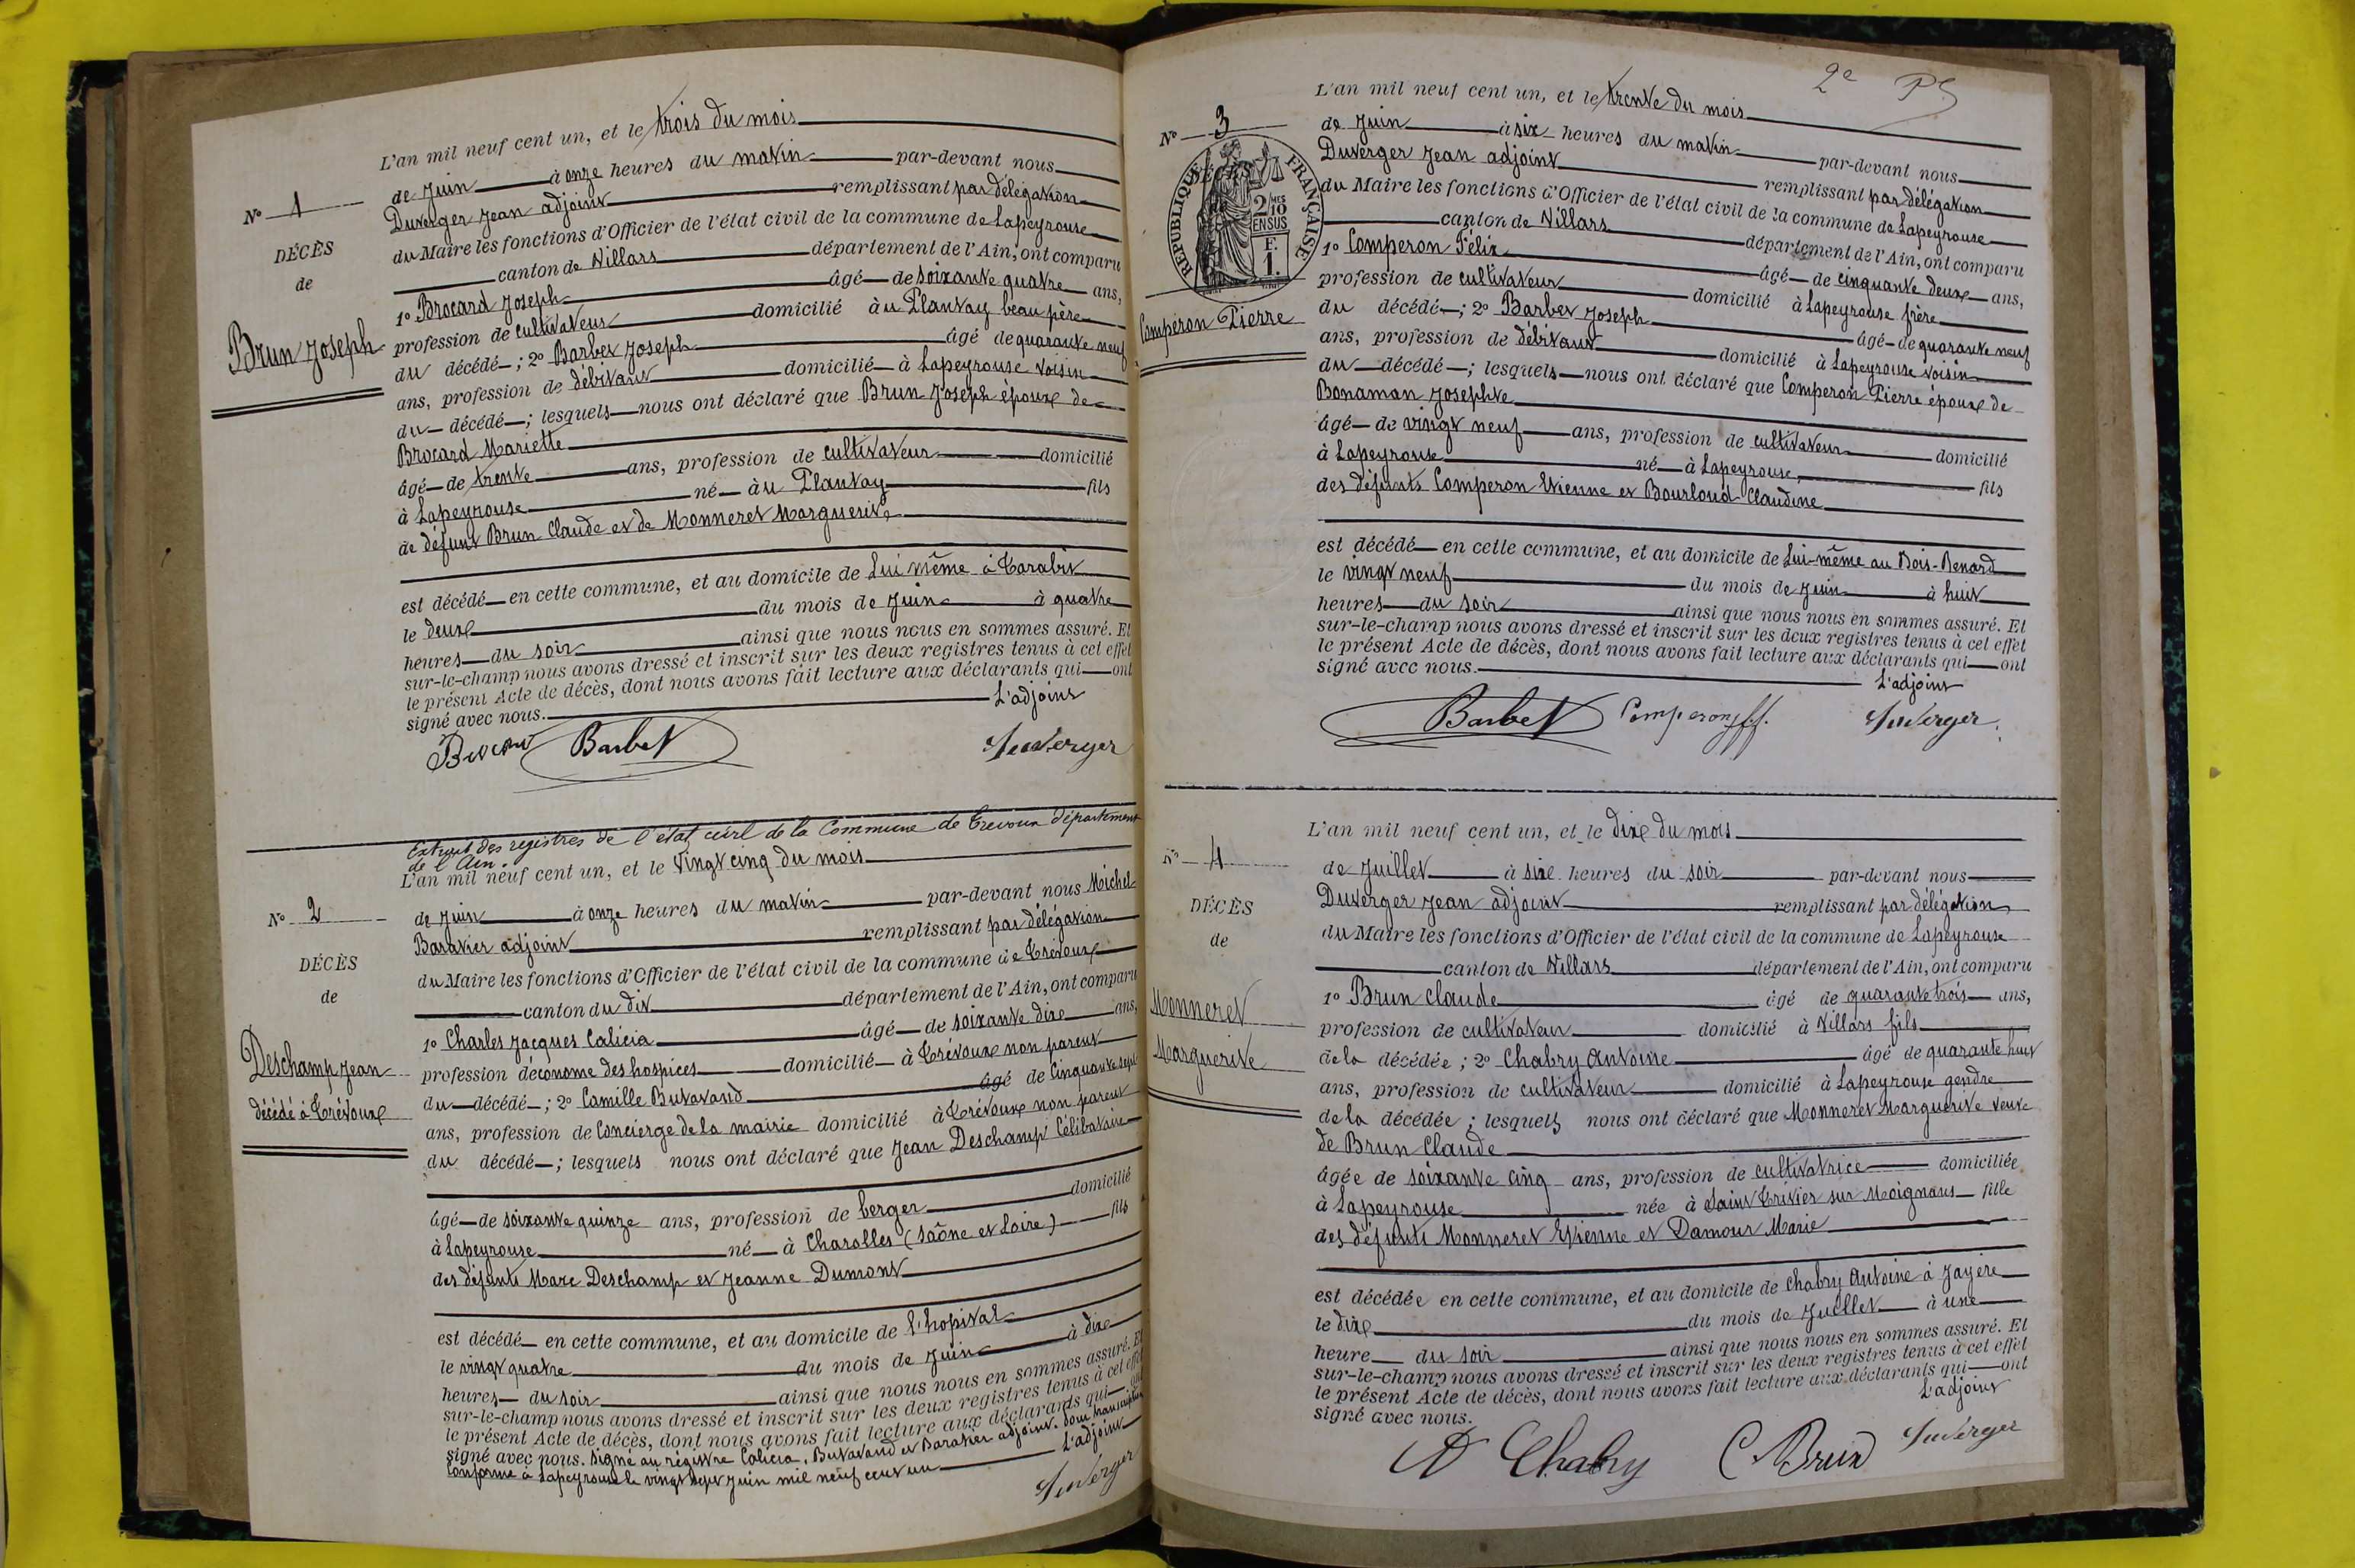 L'an mil neuf cent un, et le trois du mois
de Juin à onze heures du matin par-devant nous
Duverger Jean adjoint remplissant par délégation
du Maire les fonctions d'Officier de l'état civil de la commune de Lapeyrouse
canton de Villars département de l'Ain, ont comparu
1° Brocard Joseph âgé de soixante quatre ans,
profession de cultivateur domicilié à u Plantay beau père
du décédé ; 2° Barbet Joseph âgé de quarante neuf
ans, profession de débitant domicilié à Lapeyrouse voisin
du décédé ; lesquels nous ont déclaré que Brun Joseph époux de
Brocard Mariette
âgé de trente ans, profession de cultivateur domicilié
à Lapeyrouse né à u Plantay fils
de défunt Brun Claude et de Monneret Marguerite
est décédé en cette commune, et au domicile de Lui même à Carabit
le deux du mois de Juin à quatre
heures du soir ainsi que nous nous en sommes assuré. Et
sur-le-champ nous avons dressé et inscrit sur les deux registres tenus à cet effet
le présent Acte de décès, dont nous avons fait lecture aux déclarants qui ont
signé avec nous. L'adjoint
Barbet Duverger
N° 1
DÉCÈS
de
Brun Joseph
Extrait des registres de l'etat civil de la Commune de Trevoux département
de l'Ain.
L'an mil neuf cent un, et le vingt cinq du mois
de Juin à onze heures du matin par-devant nous Michel
Baratier adjoint remplissant par délégation
du Maire les fonctions d'Officier de l'état civil de la commune de Trévoux
canton du dit département de l'Ain, ont comparu
1° Charles Jacques Calicia âgé de soixante dix ans,
profession d'économe des hospices domicilié à Trévoux non parent
du décédé ; 2° Camille Butavand âgé de cinquante sept
ans, profession de concierge de la mairie domicilié à Trévoux non parent
du décédé ; lesquels nous ont déclaré que Jean Deschamp Célibataire
âgé de soixante quinze ans, profession de berger domicilié
à Lapeyrouse né à Charolles (Saône et Loire) fils
des défunts Marc Deschamp et Jeanne Dumont
est décédé en cette commune, et au domicile de l'hopital
le vingt quatre du mois de Juin à dix
heures du soir ainsi que nous nous en sommes assuré. Et
sur-le-champ nous avons dressé et inscrit sur les deux registres tenus à cet effet
le présent Acte de décès, dont nous avons fait lecture aux déclarants qui ont
signé avec nous. Signé au régistre Calicia, Butavand et Baratier adjoint. Pour transcription
conforme à Lapeyrouse le vingt sept Juin mil neuf cent un L'adjoint
Duverger
N° 2
DÉCÈS
de
Deschamp Jean
décédé à Trévoux
2e
L'an mil neuf cent un, et le trente du mois
de Juin à six heures du matin par-devant nous
Duverger Jean adjoint remplissant par délégation
du Maire les fonctions d'Officier de l'état civil de la commune de Lapeyrouse
canton de Villars département de l'Ain, ont comparu
1° Comperon Félix âgé de cinquante deux ans,
profession de cultivateur domicilié à Lapeyrouse frère
du décédé ; 2° Barbet Joseph âgé de quarante neuf
ans, profession de débitant domicilié à Lapeyrouse voisin
du décédé ; lesquels nous ont déclaré que Comperon Pierre époux de
Bonaman Josephte
âgé de vingt neuf ans, profession de cultivateur domicilié
à Lapeyrouse né à Lapeyrouse fils
des défunts Comperon Etienne et Bourloud Claudine
est décédé en cette commune, et au domicile de Lui-même au Bois-Benard
le vingt neuf du mois de Juin à huit
heures du soir ainsi que nous nous en sommes assuré. Et
sur-le-champ nous avons dressé et inscrit sur les deux registres tenus à cet effet
le présent Acte de décès, dont nous avons fait lecture aux déclarants qui ont
signé avec nous. L'adjoint
Barbet Comperon Duverger
N° 3
RÉPUBLIQUE FRANÇAISE
2/10
EN SUS
F.
1.
Comperon Pierre
L'an mil neuf cent un, et le dix du mois
de Juillet à six heures du soir par-devant nous
Duverger Jean adjoint remplissant par délégation
du Maire les fonctions d'Officier de l'état civil de la commune de Lapeyrouse
canton de Villars département de l'Ain, ont comparu
1° Brun Claude âgé de quarante trois ans,
profession de cultivateur domicilié à Villars fils
de la décédée ; 2° Chabry Antoine âgé de quarante huit
ans, profession de cultivateur domicilié à Lapeyrouse gendre
de la décédée ; lesquels nous ont déclaré que Monneret Marguerite veuve
de Brun Claude
âgée de soixante cinq ans, profession de cultivatrice domiciliée
à Lapeyrouse née à Saint Trivier sur Moignans fille
des défunts Monneret Etienne et Damour Marie
est décédée en cette commune, et au domicile de Chabry Antoine à Jayère
le dix du mois de Juillet à une
heure du soir ainsi que nous nous en sommes assuré. Et
sur-le-champ nous avons dressé et inscrit sur les deux registres tenus à cet effet
le présent Acte de décès, dont nous avons fait lecture aux déclarants qui ont
signé avec nous. L'adjoint
Chabry C Brun Duverger
N° 4
DÉCÈS
de
Monneret
Marguerite